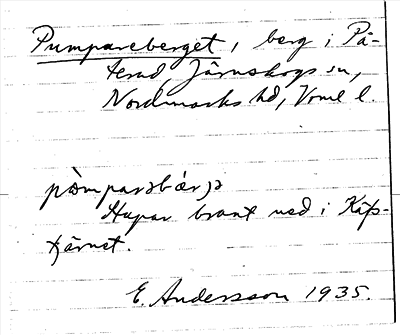 Pumpareberget, berg i På-
terud, Järnskogs sn,
Nordmarks hd, Vrml l.
pòmparəbǽrjə
Stupar brant ned i Käps-
tjärnet.
E. Andersson 1935.